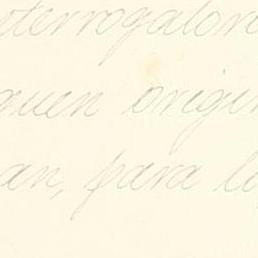 nterrogalori
quen origin
an, para la